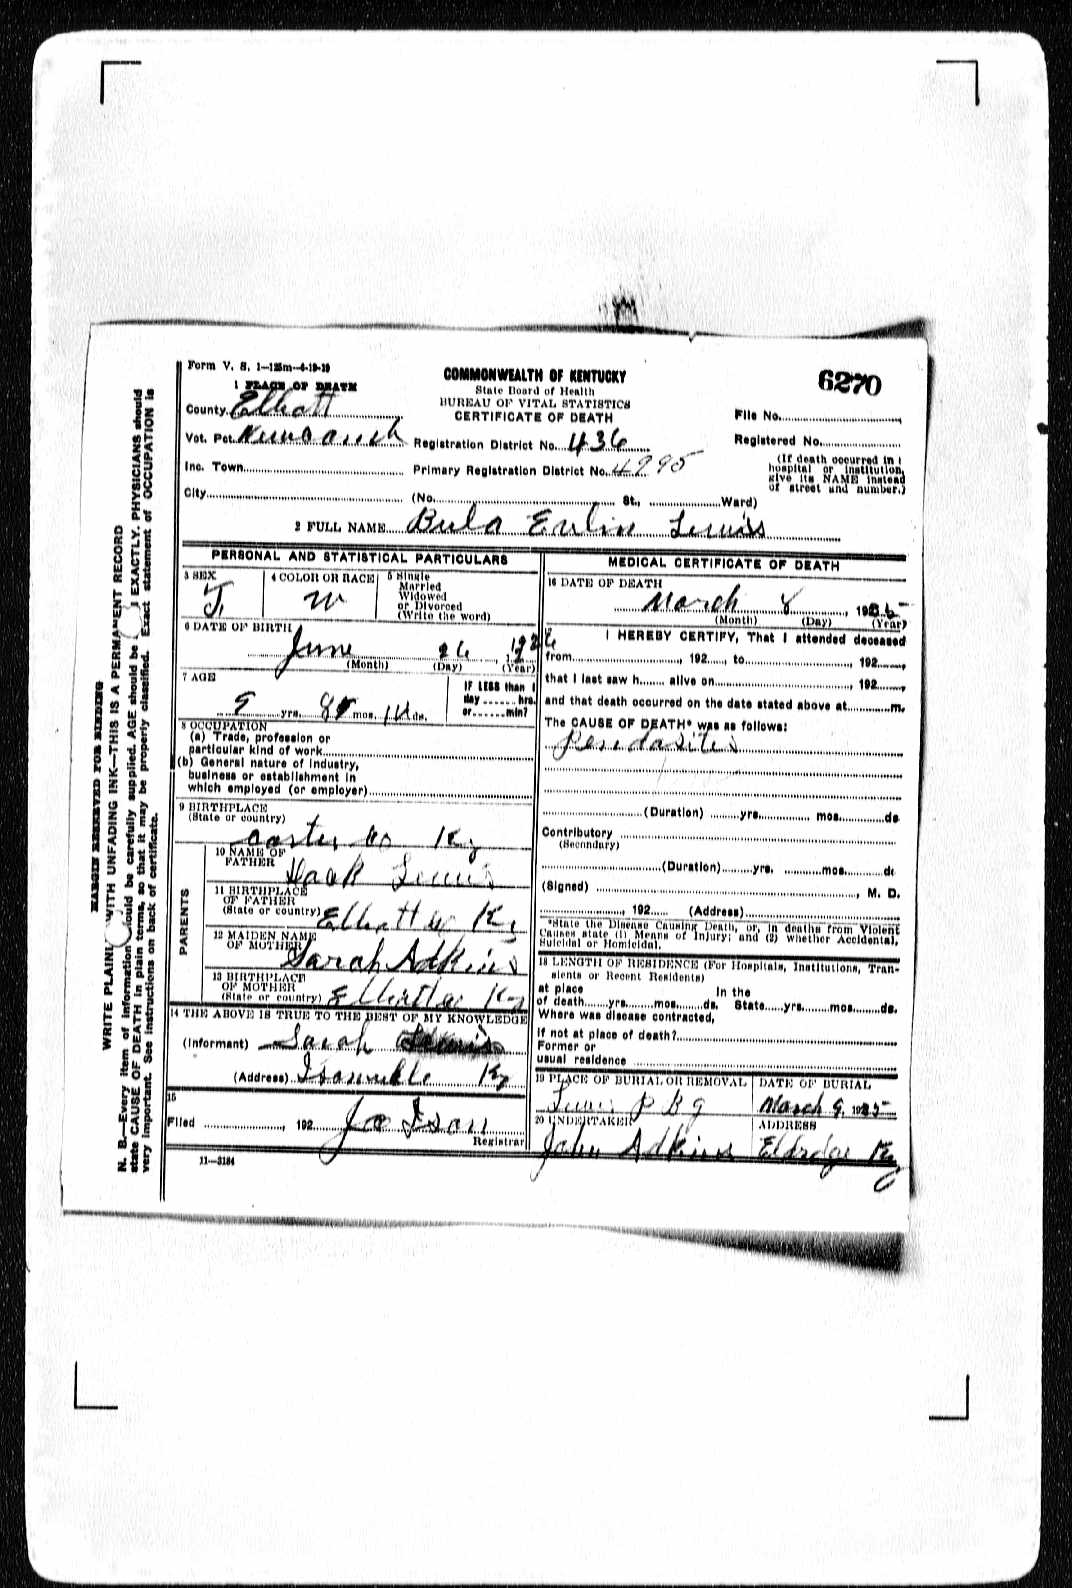 Form V. S. 1—125m—4-19-19
1 PLACE OF DEATH
County Elliott
Vot. Pct. Newcomb
Inc. Town
City
COMMONWEALTH OF KENTUCKY
State Board of Health
BUREAU OF VITAL STATISTICS
CERTIFICATE OF DEATH
Registration District No. 436
Primary Registration District No. 4995
(No. St., Ward)
6270
File No.
Registered No.
(If death occurred in
hospital or institution,
give its NAME instead
of street and number.)
2 FULL NAME Bula Lewis
PERSONAL AND STATISTICAL PARTICULARS
3 SEX F
4 COLOR OR RACE W
5 Single
Married
Widowed
or Divorced
(Write the word)
6 DATE OF BIRTH
June 26
(Month) (Day) (Year)
7 AGE
9 yrs. 8 mos. ds.
IF LESS than 1
day hrs.
or min?
8 OCCUPATION
(a) Trade, profession or
particular kind of work
(b) General nature of industry,
business or establishment in
which employed (or employer)
9 BIRTHPLACE
(State or country)
Carter Co Ky
PARENTS
10 NAME OF
FATHER
Lewis
11 BIRTHPLACE
OF FATHER
(State or country) Elliott Co Ky
12 MAIDEN NAME
OF MOTHER Sarah Adkins
13 BIRTHPLACE
OF MOTHER
(State or country) Elliott Co Ky
14 THE ABOVE IS TRUE TO THE BEST OF MY KNOWLEDGE
(Informant) Sarah Lewis
(Address) Isonville Ky
15
Filed , 192 Joe Ison
Registrar
11—3184
MEDICAL CERTIFICATE OF DEATH
16 DATE OF DEATH
March 8, 1935
(Month) (Day) (Year)
I HEREBY CERTIFY, That I attended deceased
from , 192 , to , 192 ,
that I last saw h alive on , 192 ,
and that death occurred on the date stated above at m.
The CAUSE OF DEATH* was as follows:
(Duration) yrs. mos. ds
Contributory
(Secondary)
(Duration) yrs. mos. ds
(Signed) , M. D.
, 192 (Address)
*State the Disease Causing Death, or, in deaths from Violent
Causes state (1) Means of Injury; and (2) whether Accidental,
Suicidal or Homicidal.
18 LENGTH OF RESIDENCE (For Hospitals, Institutions, Tran-
sients or Recent Residents)
at place In the
of death yrs. mos. ds. State yrs. mos. ds.
Where was disease contracted,
If not at place of death?
Former or
usual residence
19 PLACE OF BURIAL OR REMOVAL
DATE OF BURIAL
March 9, 1935
20 UNDERTAKER
John Adkins
ADDRESS
Eldridge Ky
MARGIN RESERVED FOR BINDING
WRITE PLAINLY WITH UNFADING INK—THIS IS A PERMANENT RECORD
N. B.—Every item of information should be carefully supplied. AGE should be EXACTLY. PHYSICIANS should
state CAUSE OF DEATH in plain terms, so that it may be properly classified. Exact statement of OCCUPATION is
very important. See instructions on back of certificate.